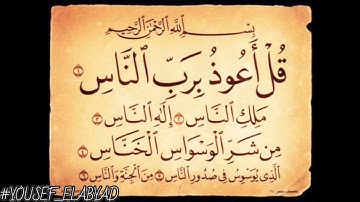 بِسْمِ اللَّهِ الرَّحْمَٰنِ الرَّحِيمِ
قُلْ أَعُوذُ بِرَبِّ النَّاسِ ١
مَلِكِ النَّاسِ ٢ إِلَٰهِ النَّاسِ ٣
مِن شَرِّ الْوَسْوَاسِ الْخَنَّاسِ ٤
الَّذِي يُوَسْوِسُ فِي صُدُورِ النَّاسِ ٥ مِنَ الْجِنَّةِ وَالنَّاسِ ٦
#YOUSEF_ELABYAD